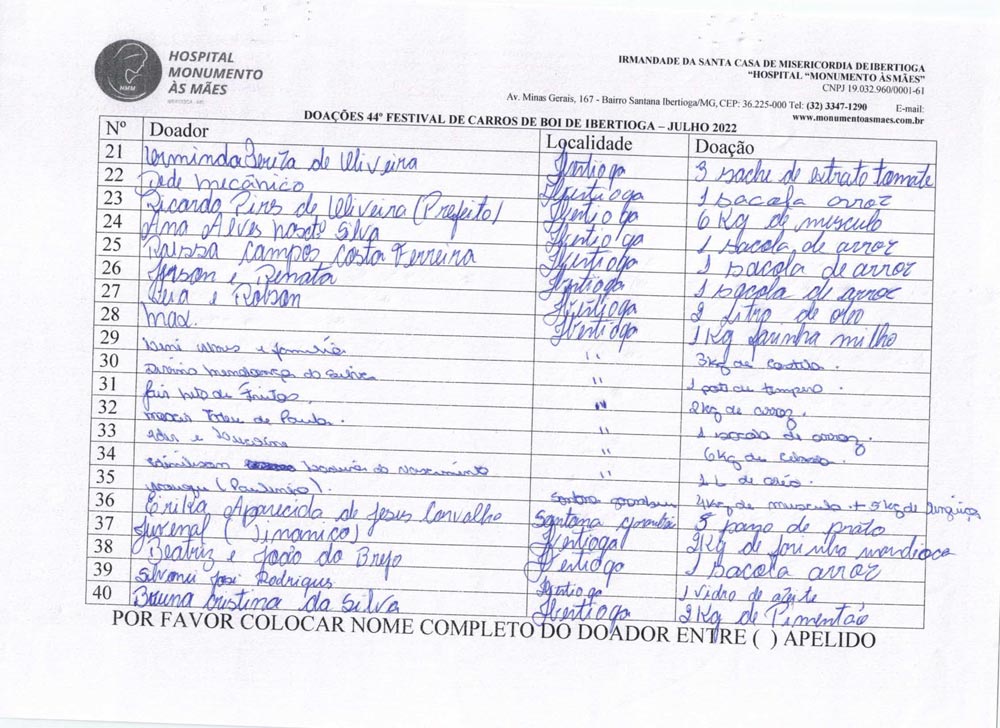 HOSPITAL
MONUMENTO
ÀS MÃES
IRMANDADE DA SANTA CASA DE MISERICORDIA DE IBERTIOGA
“HOSPITAL “MONUMENTO ÀS MÃES”
CNPJ 19.032.960/0001-61
Av. Minas Gerais, 167 - Bairro Santana Ibertioga/MG, CEP: 36.225-000 Tel: (32) 3347-1290 E-mail:
www.monumentoasmaes.com.br
DOAÇÕES 44º FESTIVAL DE CARROS DE BOI DE IBERTIOGA – JULHO 2022
Nº Doador Localidade Doação
21 de Oliveira Ibertioga 3 sache de extrato tomate
22 Dede mecânico Ibertioga 1 sacola arroz
23 Ricardo Pires de Oliveira (Prefeito) Ibertioga 6 Kg de musculo
24 Ana Alves Silva Ibertioga 1 sacola de arroz
25 Raissa Campos Costa Ferreira Ibertioga 1 sacola de arroz
26 e Renata Ibertioga 1 sacola de arroz
27 e Robson Ibertioga 2 litro de oleo
28 Max. Ibertioga 1 Kg farinha milho
29 e família " 3kg de
30 Mendonça da Silva " 1 pote de tempero.
31 de Freitas. " 2kg de arroz.
32 de Paula. " 1 sacola de arroz.
33 e " 6kg de
34 do Nascimento " 1 L de oleo.
35 (Paulinho). Santana 4Kg de musculo + 5kg de linguiça
36 Erika Aparecida de Jesus Carvalho Santana 5 pano de prato
37 Juvenal (Dinamico) Ibertioga 2Kg de farinha mandioca
38 Beatriz e João do Brejo Ibertioga 1 sacola arroz
39 José Rodrigues Ibertioga 1 vidro de azeite
40 Bruna Cristina da Silva Ibertioga 2Kg de Pimentão
POR FAVOR COLOCAR NOME COMPLETO DO DOADOR ENTRE ( ) APELIDO